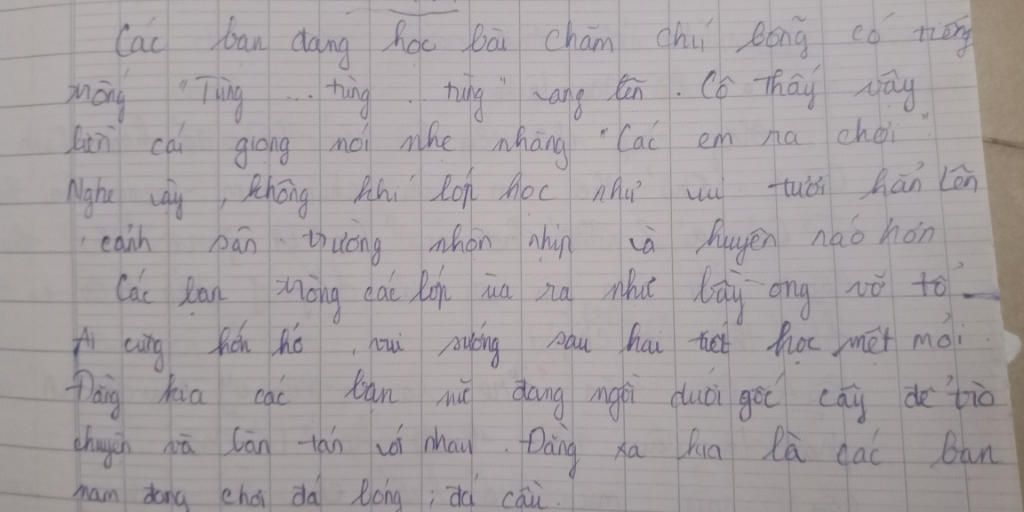 Các bạn đang học bài chăm chú bỗng có tiếng
trống "Tùng ... tùng .. tùng" vang lên. Cô thấy vậy
liền cất giọng nói nhẹ nhàng "Các em ra chơi"
Nghe vậy, không khí lớp học như vui tươi hẳn lên
, cảnh sân trường nhộn nhịp và huyên náo hơn
Các bạn trong các lớp ùa ra như bầy ong vỡ tổ
Ai cũng hớn hở, vui sướng sau hai tiết học mệt mỏi.
Đằng kia các bạn nữ đang ngồi dưới gốc cây để trò
chuyện và bàn tán với nhau. Đằng xa kia là các bạn
nam đang chơi đá bóng, đá cầu.